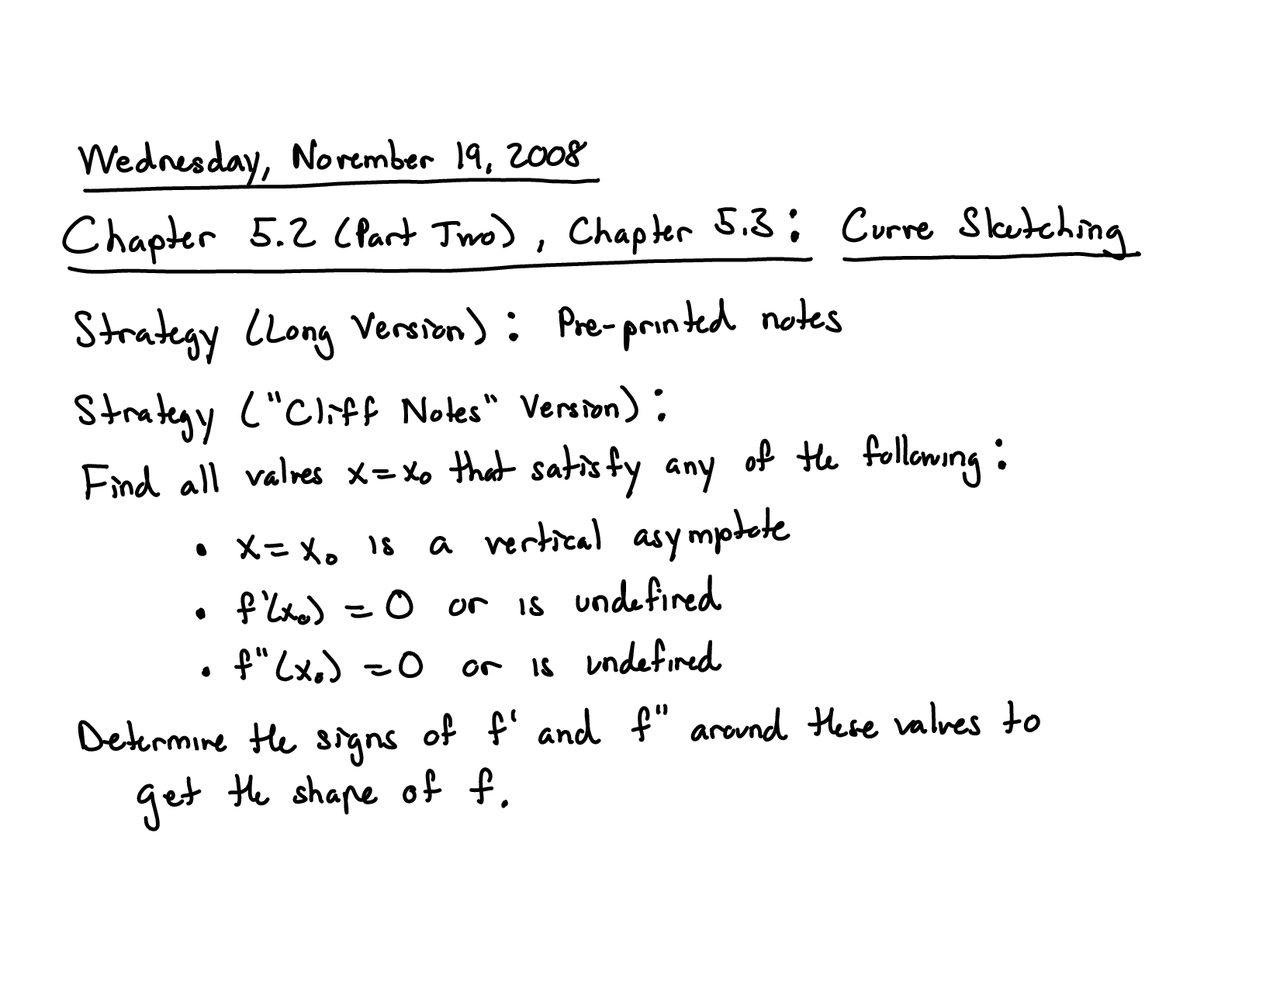 Wednesday, November 19, 2008
Chapter 5.2 (Part Two), Chapter 5.3: Curve Sketching
Strategy (Long Version): Pre-printed notes
Strategy ("Cliff Notes" Version):
Find all values x = x₀ that satisfy any of the following:
• x = x₀ is a vertical asymptote
• f'(x₀) = 0 or is undefined
• f"(x₀) = 0 or is undefined
Determine the signs of f' and f" around these values to
get the shape of f.